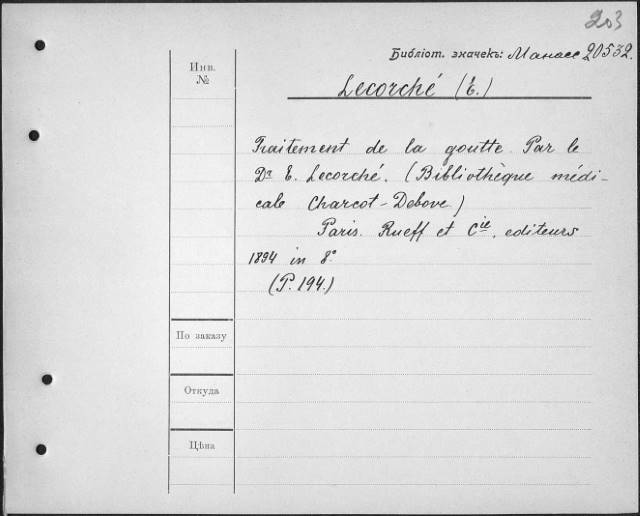 203
Библіот. значекъ: Манасс 20532.
Инв.
№
Lecorché (E.)
Traitement de la goutte. Par le
Dr E. Lecorché. (Bibliothèque médi-
cale Charcot-Debove)
Paris. Rueff et Cie. editeurs
1894 in 8°
(P. 194.)
По заказу
Откуда
Цѣна